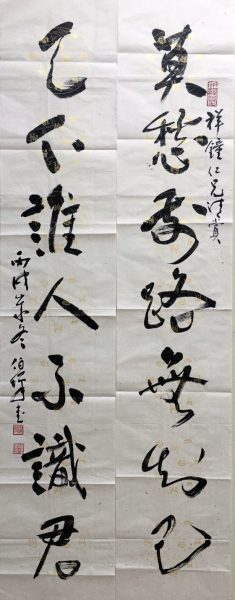 莫愁前路無知己
祥鐘仁兄清賞
天下誰人不識君
丙戌年冬 伯